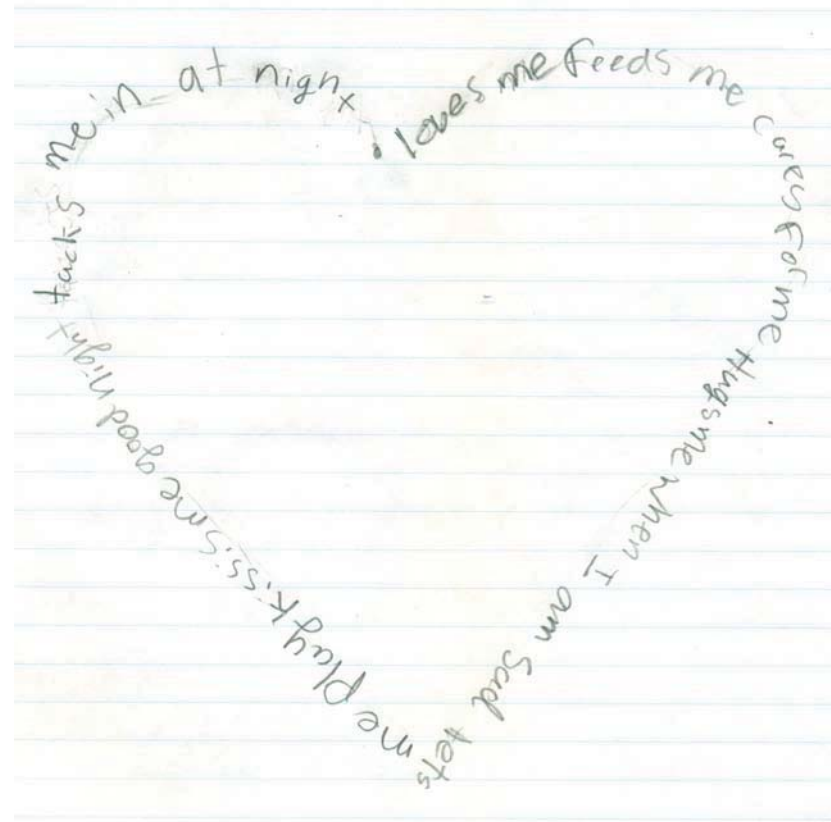 loves me feeds me cares for me Hugs me when I am Sad lets me play kissis me good night tucks me in at night.